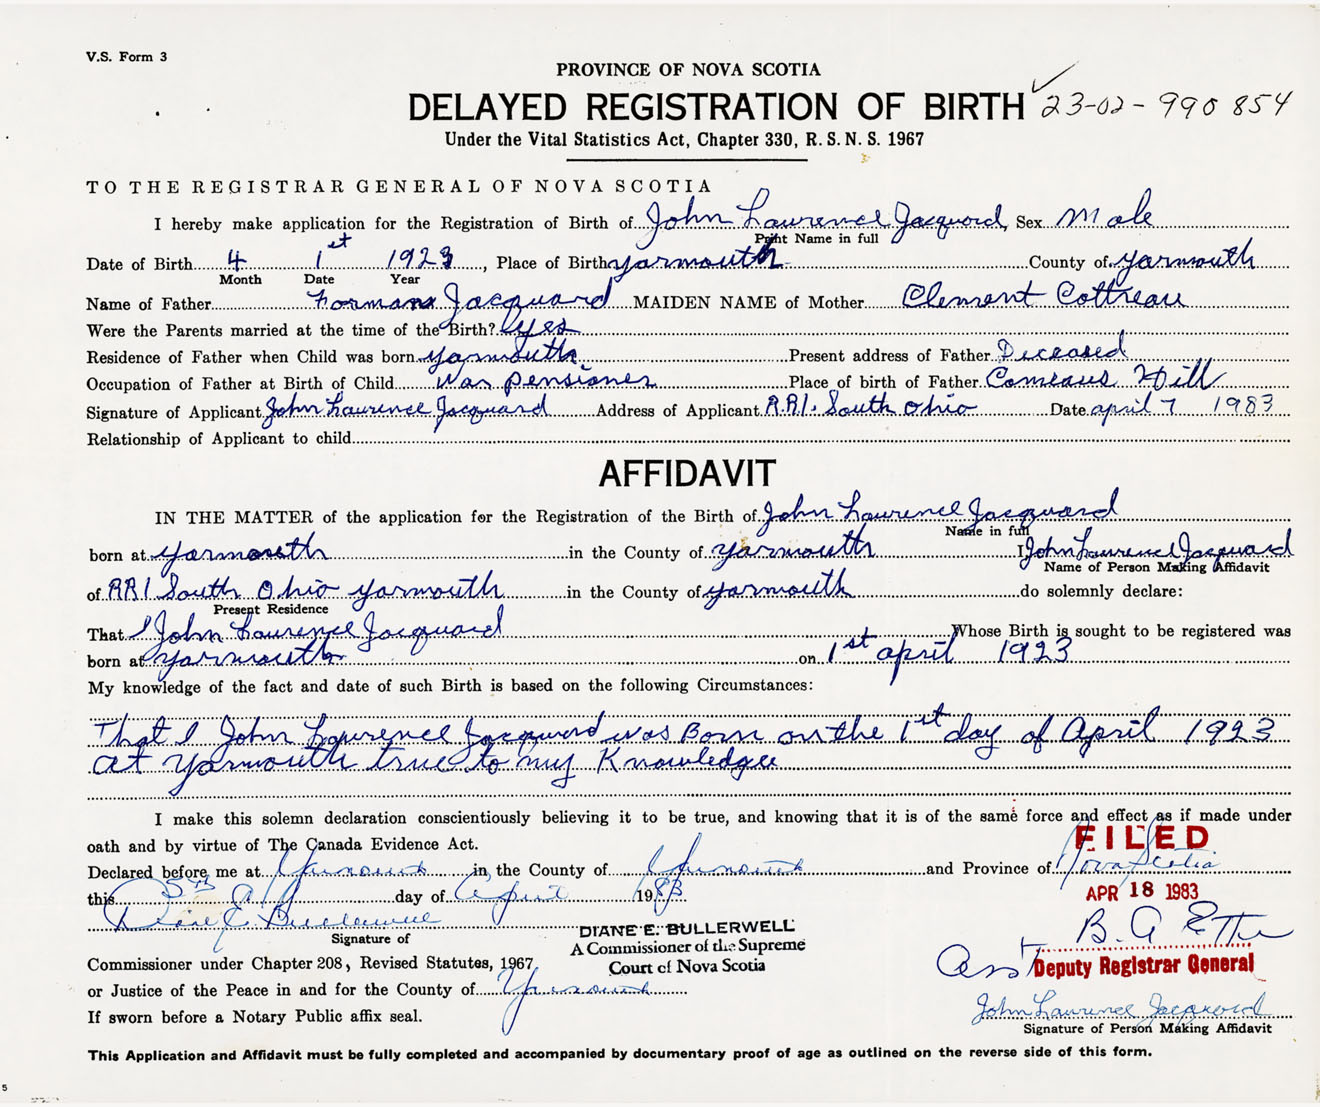 V.S. Form 3
PROVINCE OF NOVA SCOTIA
DELAYED REGISTRATION OF BIRTH ✓ 23-02-990 854
Under the Vital Statistics Act, Chapter 330, R. S. N. S. 1967
TO THE REGISTRAR GENERAL OF NOVA SCOTIA
I hereby make application for the Registration of Birth of John Lawrence Jacquard, Sex Male
Print Name in full
Date of Birth 4 1st 1923, Place of Birth Yarmouth County of Yarmouth
Month Date Year
Name of Father Forman Jacquard MAIDEN NAME of Mother Clement Cottreau
Were the Parents married at the time of the Birth? Yes
Residence of Father when Child was born Yarmouth Present address of Father Deceased
Occupation of Father at Birth of Child War pensioner Place of birth of Father Comeaus Hill
Signature of Applicant John Lawrence Jacquard Address of Applicant R.R1. South Ohio Date april 7 1983
Relationship of Applicant to child
AFFIDAVIT
IN THE MATTER of the application for the Registration of the Birth of John Lawrence Jacquard
Name in full
born at Yarmouth in the County of Yarmouth I John Lawrence Jacquard
Name of Person Making Affidavit
of RR1 South Ohio Yarmouth in the County of Yarmouth do solemnly declare:
Present Residence
That I John Lawrence Jacquard Whose Birth is sought to be registered was
born at Yarmouth on 1st april 1923
My knowledge of the fact and date of such Birth is based on the following Circumstances:
That I John Lawrence Jacquard was Born on the 1st day of April 1923
at Yarmouth true to my Knowledge
I make this solemn declaration conscientiously believing it to be true, and knowing that it is of the same force and effect as if made under
oath and by virtue of The Canada Evidence Act.
FILED
Declared before me at Yarmouth in the County of Yarmouth and Province of Nova Scotia
this day of April 1983
APR 18 1983
Diane E. Bullerwell
DIANE E. BULLERWELL
B. A Etter
Signature of
A Commissioner of the Supreme
Commissioner under Chapter 208, Revised Statutes, 1967
Court of Nova Scotia
Asst Deputy Registrar General
or Justice of the Peace in and for the County of Yarmouth
John Lawrence Jacquard
If sworn before a Notary Public affix seal.
Signature of Person Making Affidavit
This Application and Affidavit must be fully completed and accompanied by documentary proof of age as outlined on the reverse side of this form.
5